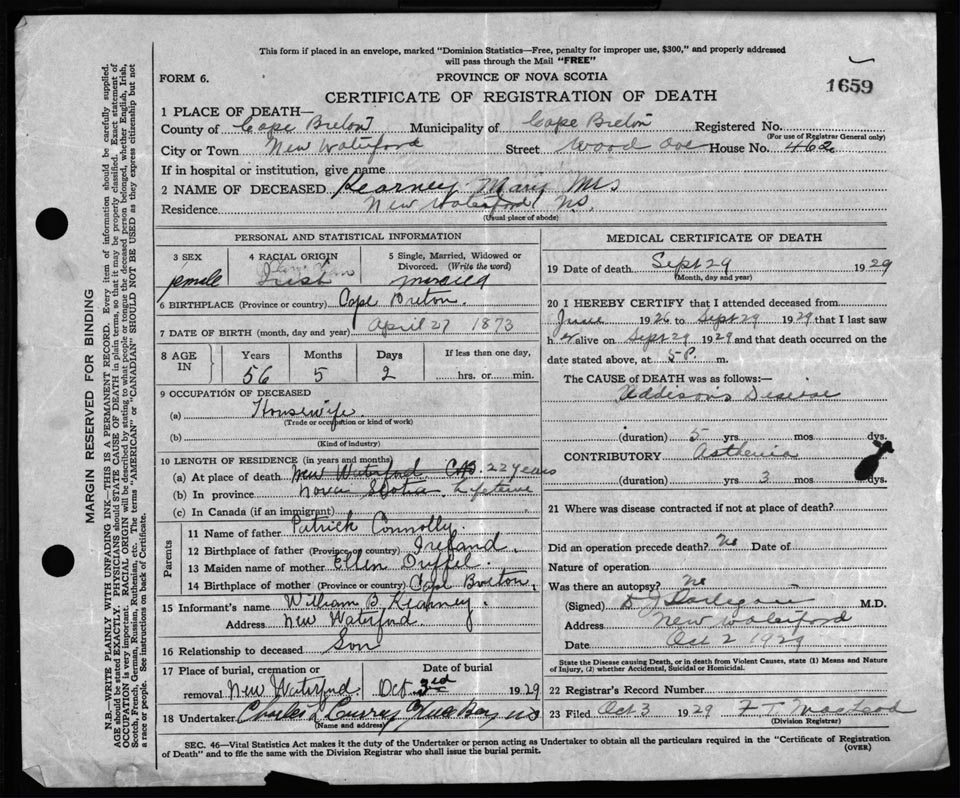 This form if placed in an envelope, marked "Dominion Statistics—Free, penalty for improper use, $300," and properly addressed
will pass through the Mail "FREE"
FORM 6.
PROVINCE OF NOVA SCOTIA
1659
CERTIFICATE OF REGISTRATION OF DEATH
1 PLACE OF DEATH—
County of Cape Breton Municipality of Cape Breton Registered No.
(For use of Registrar General only)
City or Town New Waterford Street Wood Ave House No. 462
If in hospital or institution, give name
2 NAME OF DECEASED Kearney Mary Mrs
Residence New Waterford N.S.
(Usual place of abode)
PERSONAL AND STATISTICAL INFORMATION
3 SEX
female
4 RACIAL ORIGIN
Irish
5 Single, Married, Widowed or
Divorced. (Write the word)
married
6 BIRTHPLACE (Province or country) Cape Breton.
7 DATE OF BIRTH (month, day and year) April 27 1873
8 AGE IN
Years Months Days If less than one day,
56 5 2 hrs. or min.
9 OCCUPATION OF DECEASED
(a) Housewife
(Trade or occupation or kind of work)
(b)
(Kind of industry)
10 LENGTH OF RESIDENCE (in years and months)
(a) At place of death New Waterford C.B. 22 years
(b) In province Nova Scotia Lifetime
(c) In Canada (if an immigrant)
Parents
11 Name of father Patrick Connolly.
12 Birthplace of father (Province or country) Ireland.
13 Maiden name of mother Ellen
14 Birthplace of mother (Province or country) Cape Breton.
15 Informant's name William B. Kearney.
Address New Waterford.
16 Relationship to deceased Son
17 Place of burial, cremation or Date of burial
removal New Waterford. Oct 3rd 1929
18 Undertaker Charles Curry NS
(Name and address)
MEDICAL CERTIFICATE OF DEATH
19 Date of death Sept 29 1929
(Month, day and year)
20 I HEREBY CERTIFY that I attended deceased from
June 1926 to Sept 29 1929 that I last saw
her alive on Sept 29 1929 and that death occurred on the
date stated above, at 5 P. m.
The CAUSE of DEATH was as follows:—
Addison's Disease
(duration) 5 yrs. mos dys.
CONTRIBUTORY Asthenia
(duration) yrs. 3 mos dys.
21 Where was disease contracted if not at place of death?
Did an operation precede death? No Date of
Nature of operation
Was there an autopsy? No
(Signed) D J M.D.
Address New Waterford
Date Oct 2 1929
State the Disease causing Death, or in death from Violent Causes, state (1) Means and Nature
of Injury, (2) whether Accidental, Suicidal or Homicidal.
22 Registrar's Record Number
23 Filed Oct 3 1929 F T MacLeod
(Division Registrar)
SEC. 46—Vital Statistics Act makes it the duty of the Undertaker or person acting as Undertaker to obtain all the particulars required in the "Certificate of Registration
of Death" and to file the same with the Division Registrar who shall issue the burial permit.
(OVER)
MARGIN RESERVED FOR BINDING
N.B.—WRITE PLAINLY WITH UNFADING INK—THIS IS A PERMANENT RECORD. Every item of information should be carefully supplied.
AGE should be stated EXACTLY. PHYSICIANS should STATE CAUSE OF DEATH in plain terms, so that it may be properly classified. Exact statement of
OCCUPATION is very important. RACIAL ORIGIN will be described by stating to what people or tongue the deceased person belonged, whether English, Irish,
Scotch, French, German, Russian, Ruthenian, etc. The terms "AMERICAN" or "CANADIAN" SHOULD NOT BE USED as they express citizenship but not
a race or people. See instructions on back of Certificate.